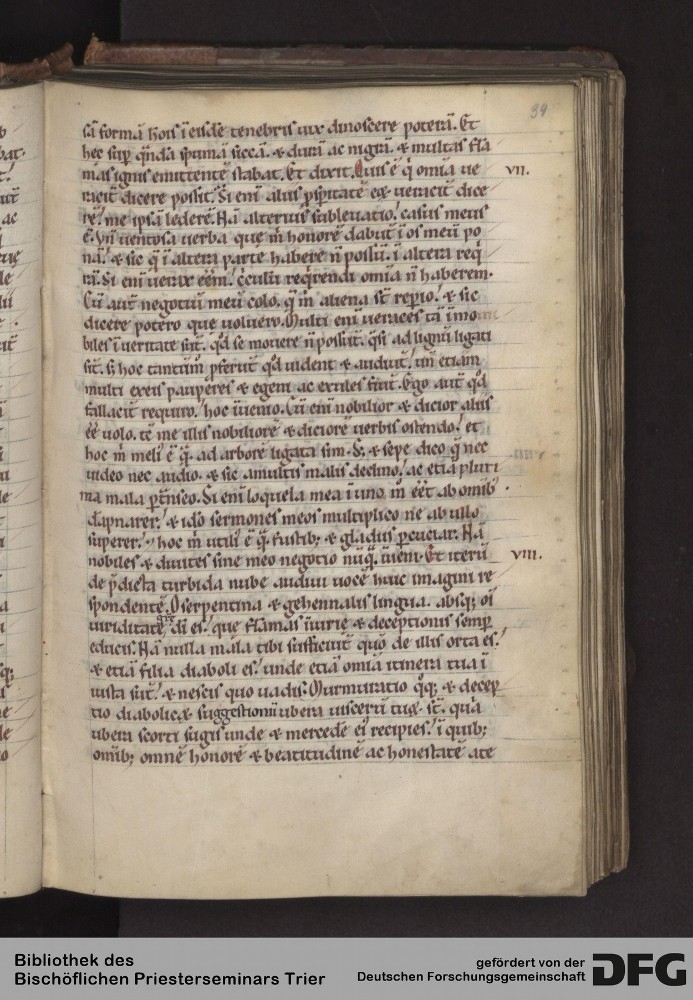 39
sā formā hoīs ī eisdē tenebris uix dinoscere poterā. Et
hec sup̄ qn̄dā spumā siccā. & durā ac nigrā. & multas flā
mas ignis emittentē stabat. Et dixit. Quis ē q̇ om̄ia ue
VII.
racit̄ dicere possit. Si enī alius p̄spitatē eꝫ ueracit̄ dice
rē! me ipsā lederē. Nā alterius subleuatio! casus meus
ē. Vn̄ uentosa uerba que m̄ honorē dabūt ī os meū po
nā! & sic q̄ ī altera parte habere n̄ possū. ī altera req̄
rā. Si enī uerax eēm! q̄rendi om̄ia n̄ haberem.
Cū aūt negotiū meū colo. q̄ m̄ aliena st̄ reperio! & sic
dicere potero que uoluero. Multi enī ueraces tā īmo
biles ī ueritate st̄. qd̄ se mouere n̄ possūt. q̄si ad lignū ligati
st̄. s; hoc tantūm̊ p̄ferūt qd̄ uident & audiūt! un̄ etiam
multi ex eis pauperes & egeni ac exules fiūt. Ego aūt qd̄
fallacit̄ requiro! hoc īuenio. Cū enī nobilior & dicior aliis
eē uolo. tē me illis nobiliorē & diciorē uerbis ostendo! et
hoc m̄ meli' ē q̄. ad arborē ligata sim. S; & sepe dico q̄ nec
uideo nec audio. & sic a multis malis declino! ac etiā pluri
ma mala p̄t̄nseo. Si enī loquela mea ī uno m̊ eēt ab om̄ib'
dāpnarer! & idō sermones meos multiplico ne ab ullo
superer! hoc m̄ utili' ē q̄. fustib; & gladiis p̄cutiar. Nā
nobiles & diuites sine meo negotio nūq̄. īueni. Et iterū
VIII.
de p̄dicta turbida nube audiui uocē huic imagini re
spondentē. O serpentina & gehennalis lingua. absq; oī
uiriditate dī es! que flāmas iniurie & deceptionis semp̄
educis. Nā nulla mala tibi sufficiūt quō de illis orta es!
& etiā filia diaboli es! unde etiā om̄ia itinera tua ī
iusta st̄! & nescis quo uadis. Murmuratio q̊q; & decep
tio diabolicę suggestionū ubera uiscerū tuꝝ st̄. quia
ubera scorti sugis unde & mercedē ei' recipies! ī quib;
om̄ib; omnē honorē & beatitudinē ac honestatē a te
Bibliothek des
Bischöflichen Priesterseminars Trier
gefördert von der
Deutschen Forschungsgemeinschaft
DFG